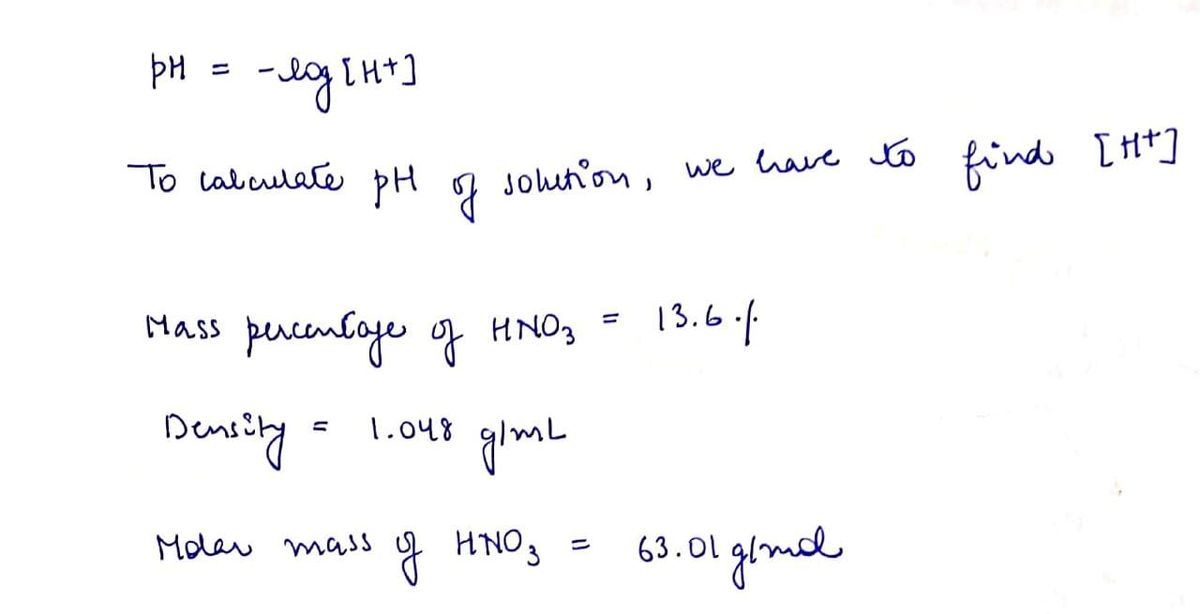 pH = -log [H+]
To calculate pH of solution, we have to find [H+]
Mass percentage of HNO3 = 13.6 %
Density = 1.048 g/mL
Molar mass of HNO3 = 63.01 g/mol